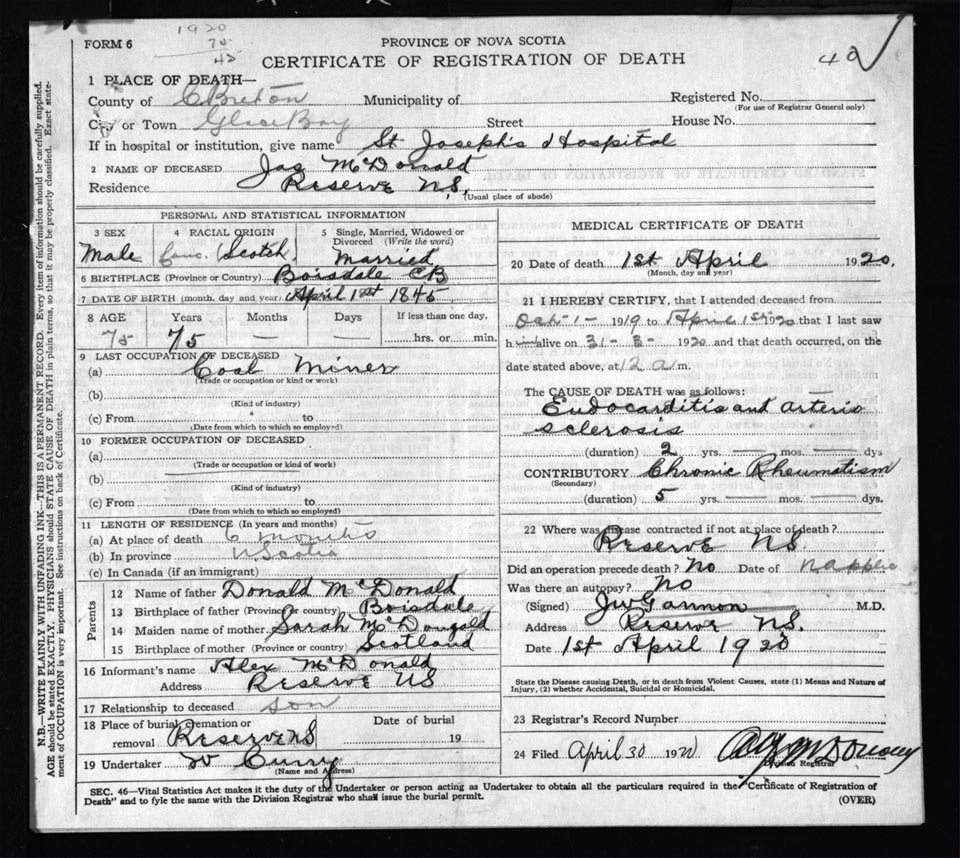 1920
75
45
FORM 6
PROVINCE OF NOVA SCOTIA
CERTIFICATE OF REGISTRATION OF DEATH
1 PLACE OF DEATH—
County of C Breton Municipality of Registered No.
(For use of Registrar General only)
City or Town Glace Bay Street House No.
If in hospital or institution, give name St Joseph's Hospital
2 NAME OF DECEASED Jas McDonald
Residence Reserve NS.
(Usual place of abode)
PERSONAL AND STATISTICAL INFORMATION
3 SEX 4 RACIAL ORIGIN 5 Single, Married, Widowed or Divorced (Write the word)
Male (Scotch) Married
6 BIRTHPLACE (Province or Country) Boisdale CB
7 DATE OF BIRTH (month, day and year) April 1st 1845.
8 AGE Years Months Days If less than one day,
75 75 — — hrs. or min.
9 LAST OCCUPATION OF DECEASED
(a) Coal Miner
(Trade or occupation or kind or work)
(b)
(Kind of industry)
(c) From to
(Date from which to which so employed)
10 FORMER OCCUPATION OF DECEASED
(a)
(Trade or occupation or kind of work)
(b)
(Kind of industry)
(c) From to
(Date from which to which so employed)
11 LENGTH OF RESIDENCE (In years and months)
(a) At place of death 6 months
(b) In province N Scotia
(c) In Canada (if an immigrant)
Parents
12 Name of father Donald McDonald
13 Birthplace of father (Province or country) Boisdale
14 Maiden name of mother Sarah McDougald
15 Birthplace of mother (Province or country) Scotland
16 Informant's name Alex McDonald
Address Reserve NS
17 Relationship to deceased son
18 Place of burial, cremation or removal Reserve NS Date of burial 19
19 Undertaker W Curry
(Name and Address)
MEDICAL CERTIFICATE OF DEATH
20 Date of death 1st April 1920.
(Month, day and year)
21 I HEREBY CERTIFY, that I attended deceased from
Oct 1 - 1919 to April 1st 1920 that I last saw
him alive on 31 - 3 - 1920 and that death occurred, on the
date stated above, at 12 a m.
The CAUSE OF DEATH was as follows:
Endocarditis and arterio
sclerosis
(duration) 2 yrs. — mos. — dys
CONTRIBUTORY Chronic Rheumatism
(Secondary)
(duration) 5 yrs. — mos. — dys.
22 Where was disease contracted if not at place of death?
Reserve NS.
Did an operation precede death? No Date of
Was there an autopsy? No
(Signed) M.D.
Address Reserve NS.
Date 1st April 1920
State the Disease causing Death, or in death from Violent Causes, state (1) Means and Nature of
Injury, (2) whether Accidental, Suicidal or Homicidal.
23 Registrar's Record Number
24 Filed April 30 192
Registrar
SEC. 46—Vital Statistics Act makes it the duty of the Undertaker or person acting as Undertaker to obtain all the particulars required in the "Certificate of Registration of
Death" and to fyle the same with the Division Registrar who shall issue the burial permit.
(OVER)
N.B.—WRITE PLAINLY WITH UNFADING INK—THIS IS A PERMANENT RECORD. Every item of information should be carefully supplied.
AGE should be stated EXACTLY. PHYSICIANS should STATE CAUSE OF DEATH in plain terms, so that it may be properly classified. Exact state-
ment of OCCUPATION is very important. See instructions on back of Certificate.